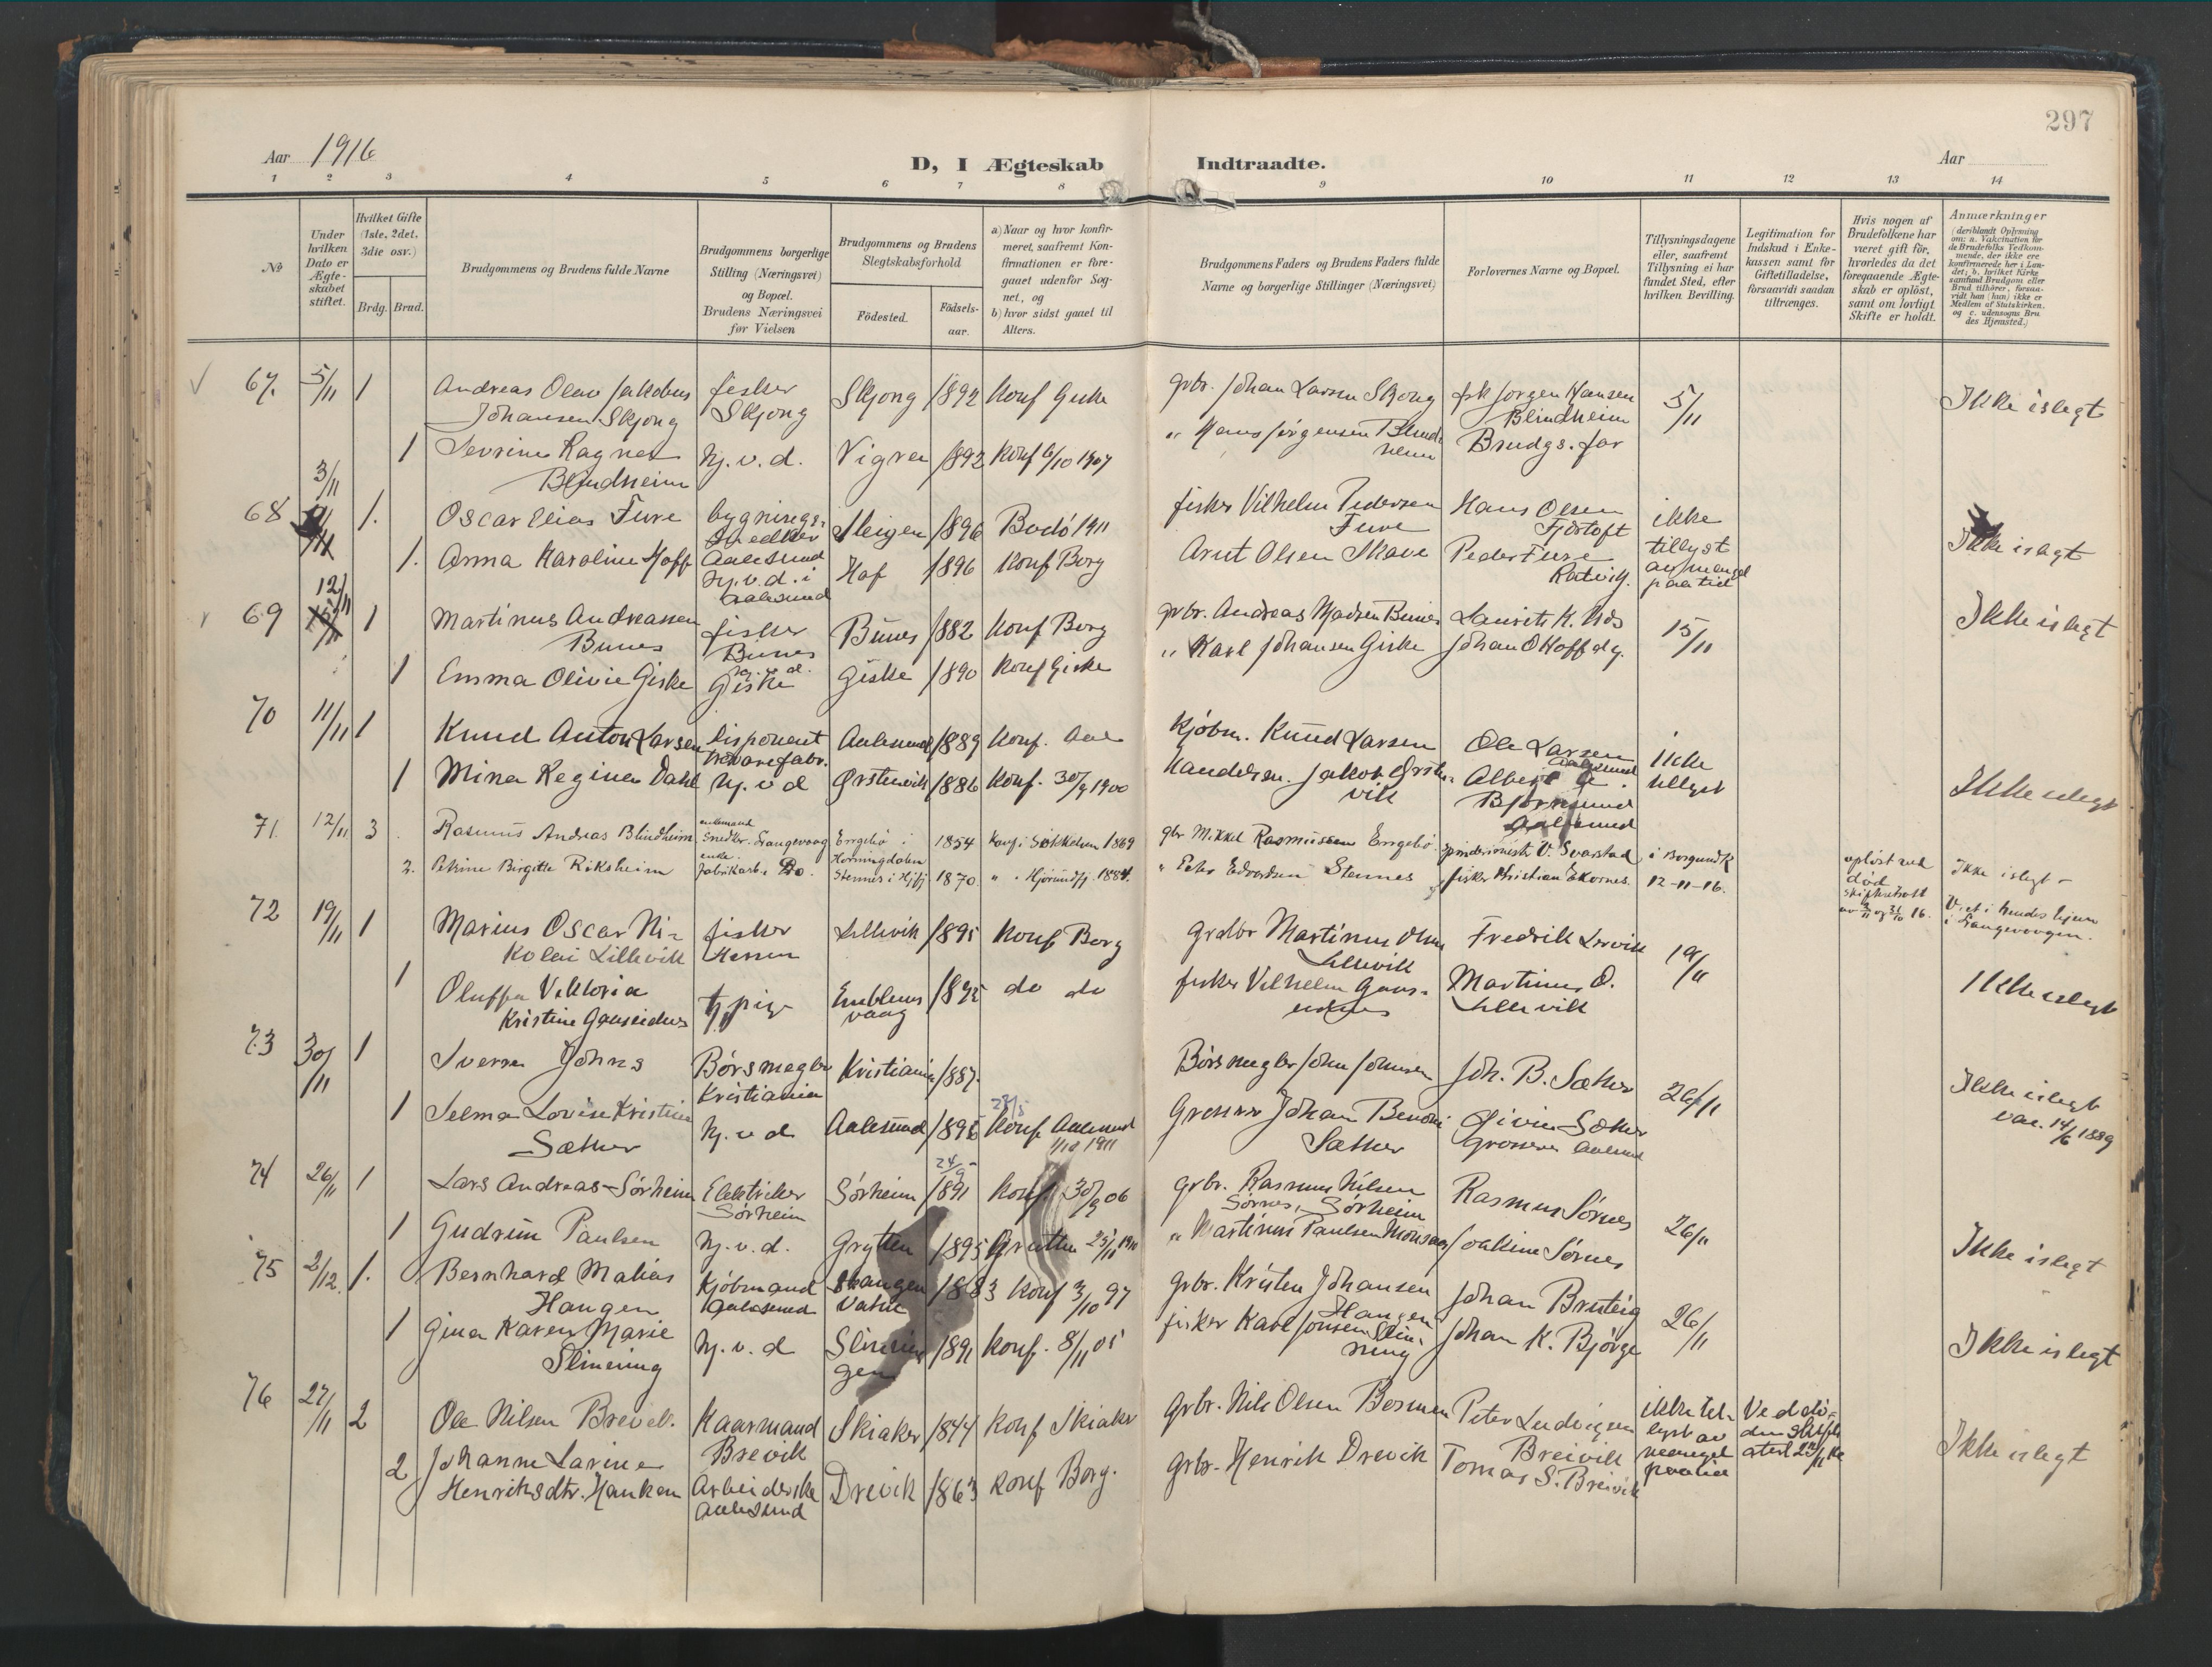 297
Aar 1916
D, I Ægteskab Indtraadte.
Aar
1 2 3 4 5 6 7 8 9 10 11 12 13 14
No
Under hvilken Dato er Ægteskabet stiftet.
Hvilket Gifte (1ste, 2det, 3die osv.)
Brdg. Brud.
Brudgommens og Brudens fulde Navne
Brudgommens borgerlige Stilling (Næringsvei) og Bopæl. Brudens Næringsvei før Vielsen
Brudgommens og Brudens Slegtskabsforhold
Fødested. Fødselsaar.
a) Naar og hvor konfirmeret, saafremt Konfirmationen er foregaaet udenfor Sognet, og
b) hvor sidst gaaet til Alters.
Brudgommens Faders og Brudens Faders fulde Navne og borgerlige Stillinger (Næringsvei)
Forlovernes Navne og Bopæl.
Tillysningsdagene eller, saafremt Tillysning ei har fundet Sted, efter hvilken Bevilling.
Legitimation for Indskud i Enkekassen samt for Giftetilladelse, forsaavidt saadan tiltrænges.
Hvis nogen af Brudefolkene har været gift før, hvorledes da det foregaaende Ægteskab er opløst, samt om lovligt Skifte er holdt.
Anmærkninger (deriblandt Oplysning om: a. Vakcination for de Brudefolks Vedkommende, der ikke ere konfirmerede her i Landet; b. hvilket Kirkesamfund Brudgom eller Brud tilhører, forsaavidt han (hun) ikke er Medlem af Statskirken. og c. udensogns Brudes Hjemsted.)
67. 5/11 1 Andreas Olav Jakobus fisker Skjong 1892 Konf Giske gbr. Johan Larsen Skjong fsk Jørgen Hansen 5/11 Ikke islegt
Johansen Skjong Skjong Blindheim
1 Sevrine Ragna hj. v. d. Vigra 1892 Konf 6/10 1907 " Hans Jørgensen Blindheim Brudgs. far
Blindheim
68 3/11 1. Oscar Elias Fure bygningssnedker Steigen 1896 Bodø 1911 fisker Vilhelm Pedersen Hans Olsen ikke Ikke islegt
Aalesund Fure Fjørtoft tillyst
1. Anna Karoline Hoff hj. v. d. i Hof 1896 Konf Borg Arnt Olsen Skave Peder Fure av mangel
Aalesund paa tid
69 12/11 1 Martinus Andreassen fisker Bunes 1882 Konf Borg gbr. Andreas Madsen Bunes Laurits K. 15/11 Ikke islegt
Bunes Bunes
1 Emma Olivie Giske hj. v. d. Giske Giske 1890 Konf Giske " Karl Johansen Giske Johan O Hoff
70 11/11 1 Knud Anton Larsen disponent Aalesund 1889 Konf. Aal Kjøbm. Knud Larsen Ole Larsen ikke Ikke islegt
trevarefabr. Aalesund tillyst
1 Mina Regine Dahl hj. v d Ørstenvik 1886 Konf. 30/9 1900 Handelsm. Jakob Ørstenvik Albert
Bjørnsund
Aalesund
71. 12/11 3 Rasmus Andreas Blindheim enkemand Snedker. Langevaag Errgebø i Horningdalen 1854 konf i 1869 gbr Mikkel Rasmussen Errgebø spinderimestr O. Svarstad i Borgund K opløst ved død Ikke islegt
2. Petrine Birgitte Riksheim enke. fabrikarb. Do. Stennes i Hjfj 1870 " Hjørundfj. 1884. " Peter Edvardsen Stennes fisker Kristian Ekornes. 12-11-16. Viet i hendes hjem i Langevaagen.
72 19/11 1 Marius Oscar Ni- fisker Lillevik 1895 Konf Borg Grdbr Martinus Olsen Fredrik Lervik 19/11 Ikke islegt
kolai Lillevik Hessen Lillevik
1 Oluffa Viktoria tj pige Emblemsvaag 1895 do do fisker Vilhelm Gaaseidnes Martinus O.
Kristine Gaaseidnes Lillevik
73 30/11 1 Iversen Johns Børsmegler Kristiania 1887. Børsmegler John Johnsen Joh. B. Sæther 26/11 Ikke islegt
Kristiania vac. 14/6 1889
1 Selma Lovise Kristine hj. v d Aalesund 1895 28/5 Konf Aalesund Grosserer Johan Benoni Sæther
Sæther 1/10 1911 Sæther Grosserer Aalesund
74 26/11 1 Lars Andreas Sørheim Elektriker Sørheim 24/9 1891 Konf 30/9 06 grbr. Rasmus Nilsen Rasmus Sørnes 26/11 Ikke islegt
Sørheim Sørnes, Sørheim
1 Gudrun Paulsen hj. v. d. Grytten 1895 Grytten 25/11 1911 " Martinus Paulsen Joakim Sørnes
75 2/12. 1. Bernhard Matias Kjøbmand Haugen 1883 Konf 3/10 97 grbr. Kristen Johansen Johan Brusteig 26/11 Ikke islegt
Haugen Aalesund Vatne Haugen
1 Gina Karen Marie hj. v. d Slinningen 1891 Konf. 8/11 05 fisker Karl Jonsen Slinning Johan K. Bjørge
Slinning
76 27/11 2 Ole Nilsen Brevik. Kaarmand Skiaker 1844 Konf Skiaker Grbr. Nils Olsen Peter Ludvigsen ikke tillyst av mangel paa tid Ved døden Skifteattest Ikke islegt
Brevik Breivik
2 Johanne Lavine Arbeiderske Drevik 1863 Konf Borg. Grbr. Henrik Drevik Tomas S. Breivik
Henriksdtr. Hanken Aalesund